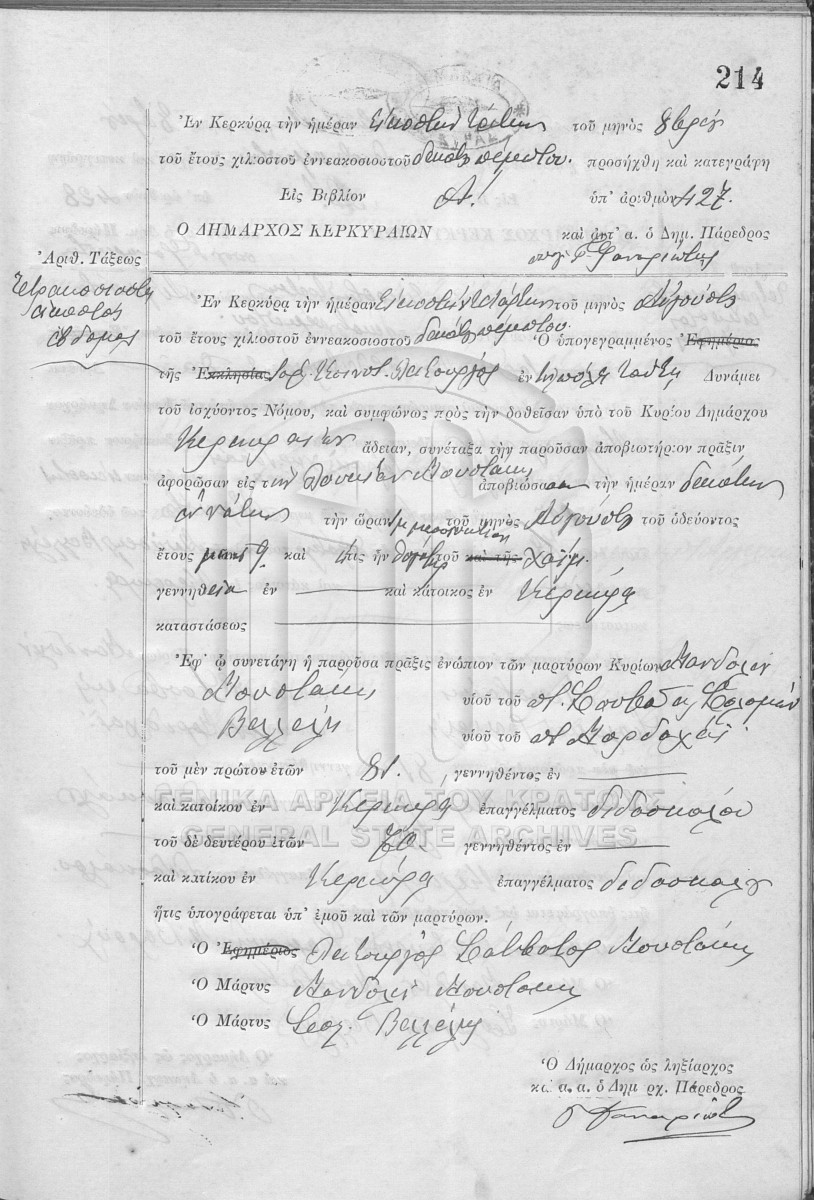 214
Ἐν Κερκύρᾳ τὴν ἡμέραν εἰκοστὴν τρίτην τοῦ μηνὸς 8βρίου
τοῦ ἔτους χιλιοστοῦ ἐννεακοσιοστοῦ δεκάτου πέμπτου. προσήχθη καὶ κατεγράφη
Εἰς Βιβλίον Α! ὑπ' ἀριθμὸν 427.
Ο ΔΗΜΑΡΧΟΣ ΚΕΡΚΥΡΑΙΩΝ καὶ ἀντ' α. ὁ Δημ. Πάρεδρος
Γ. Φαναριώτης
Ἀριθ. Τάξεως
Τετρακοσιοστὴ
εἰκοστὴ
ἑβδόμη
Ἐν Κερκύρᾳ τὴν ἡμέραν εἰκοστὴν τετάρτην τοῦ μηνὸς Αὐγούστου
τοῦ ἔτους χιλιοστοῦ ἐννεακοσιοστοῦ δεκάτου πέμπτου. Ὁ ὑπογεγραμμένος Ἐφημέριος
τῆς Ἐκκλησίας Ἰσρ. Κοινοτ. Λειτουργὸς ἐν τῇ πόλει ταύτῃ Δυνάμει
τοῦ ἰσχύοντος Νόμου, καὶ συμφώνως πρὸς τὴν δοθεῖσαν ὑπὸ τοῦ Κυρίου Δημάρχου
Κερκυραίων ἄδειαν, συνέταξα τὴν παροῦσαν ἀποβιωτήριον πρᾶξιν
ἀφορῶσαν εἰς τὴν Μουστάκη ἀποβιώσασαν τὴν ἡμέραν δεκάτην
ἐννάτην τὴν ὥραν μ. μεσονύκτιον τοῦ μηνὸς Αὐγούστου τοῦ ὁδεύοντος
ἔτους καὶ ἥτις ἦν θυγάτηρ τοῦ καὶ τῆς Χαΐμ.
γεννηθεῖσα ἐν καὶ κάτοικος ἐν Κέρκυρᾳ
καταστάσεως
Ἐφ' ᾧ συνετάγη ἡ παροῦσα πρᾶξις ἐνώπιον τῶν μαρτύρων Κυρίων Μανδολὶν
Μουστάκη υἱοῦ τοῦ π. Σαββάτη Σολομῶν
Βελλέλη υἱοῦ τοῦ π. Μαρδοχάϊ
τοῦ μὲν πρώτου ἐτῶν 81. γεννηθέντος ἐν
καὶ κατοίκου ἐν Κερκύρᾳ ἐπαγγέλματος διδασκάλου
τοῦ δὲ δευτέρου ἐτῶν 70. γεννηθέντος ἐν
καὶ κατίκου ἐν Κερκύρᾳ ἐπαγγέλματος διδασκάλου
ἥτις ὑπογράφεται ὑπ' ἐμοῦ καὶ τῶν μαρτύρων.
Ὁ Ἐφημέριος Λειτουργὸς Σάββατος Μουστάκης
Ὁ Μάρτυς Μανδολὶν Μουστάκης
Ὁ Μάρτυς Σολ. Βελλέλης
Ὁ Δήμαρχος ὡς ληξίαρχος
κα α. α. ὁ Δημ ρχ. Πάρεδρος
Γ Φαναριώτης
ΓΕΝΙΚΑ ΑΡΧΕΙΑ ΤΟΥ ΚΡΑΤΟΥΣ
GENERAL STATE ARCHIVES